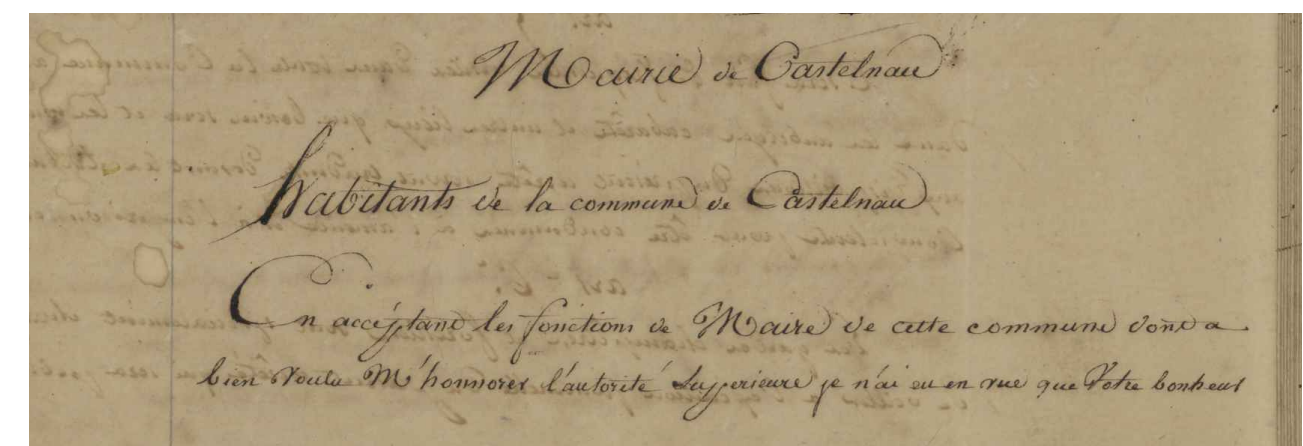 Mairie de Castelnau
habitants de la commune de Castelnau
En acceptant les fonctions de Maire de cette commune dont a
bien voulu M'honnorer l'autorité Supperieure je n'ai eu en vue que Votre bonheur